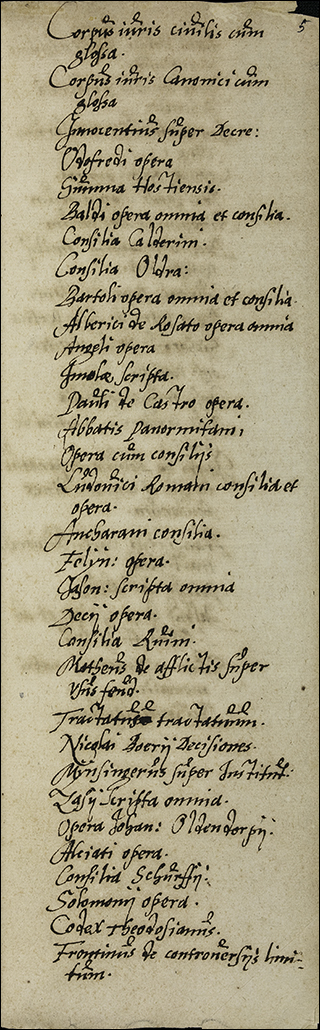 5
Corpus iuris ciuilis cum
glossa.
Corpus iuris Canonici cum
glossa
Innocentius super Decre:
Odofredi opera
Summa Hostiensis.
Baldi opera omnia et consilia.
Consilia Calderini.
Consilia Oldra:
Bartoli opera omnia et consilia.
Alberici de Rosato opera omnia
Angeli opera
Imolæ scripta.
Pauli de Castro opera.
Abbatis Panormitani
Opera cum consilijs
Ludouici Romani consilia et
opera.
Ancharani consilia.
Felyn: opera.
Jason: scripta omnia
Decij opera.
Consilia Ruini.
Matheus de afflictis super
vsus feud.
Tractatus tractatuum.
Nicolai Boerij Decisiones.
Mynsingerus super Institut:
Zasij scripta omnia.
Opera Johan: Oldendorpij.
Alciati opera.
Consilia Schurffij.
Solomonij opera.
Codex Theodosianus.
Frontinus de controuersijs limi-
tum.